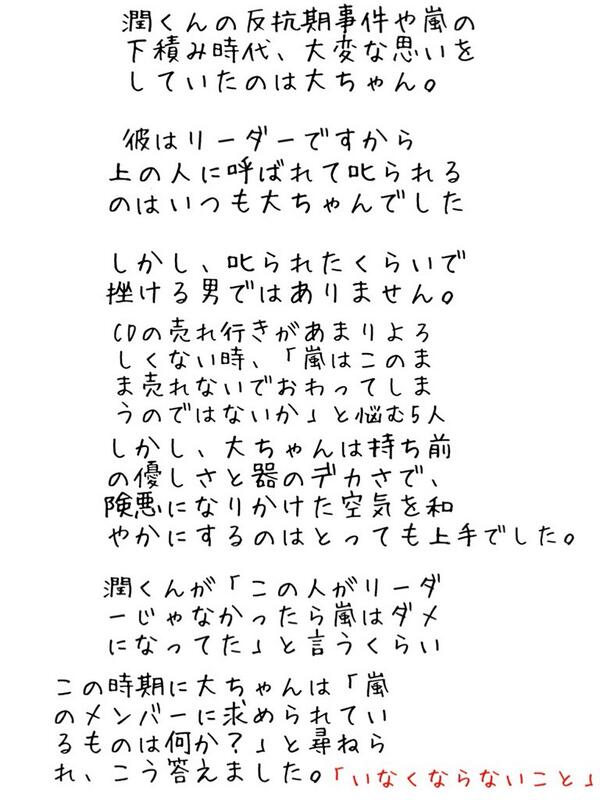 潤くんの反抗期事件や嵐の
下積み時代、大変な思いを
していたのは大ちゃん。
彼はリーダーですから
上の人に呼ばれて叱られる
のはいつも大ちゃんでした
しかし、叱られたくらいで
挫ける男ではありません。
CDの売れ行きがあまりよろ
しくない時、「嵐はこのま
ま売れないでおわってしま
うのではないか」と悩む5人
しかし、大ちゃんは持ち前
の優しさと器のデカさで、
険悪になりかけた空気を和
やかにするのはとっても上手でした。
潤くんが「この人がリーダ
ーじゃなかったら嵐はダメ
になってた」と言うくらい
この時期に大ちゃんは「嵐
のメンバーに求められてい
るものは何か?」と尋ねら
れ、こう答えました。「いなくならないこと」